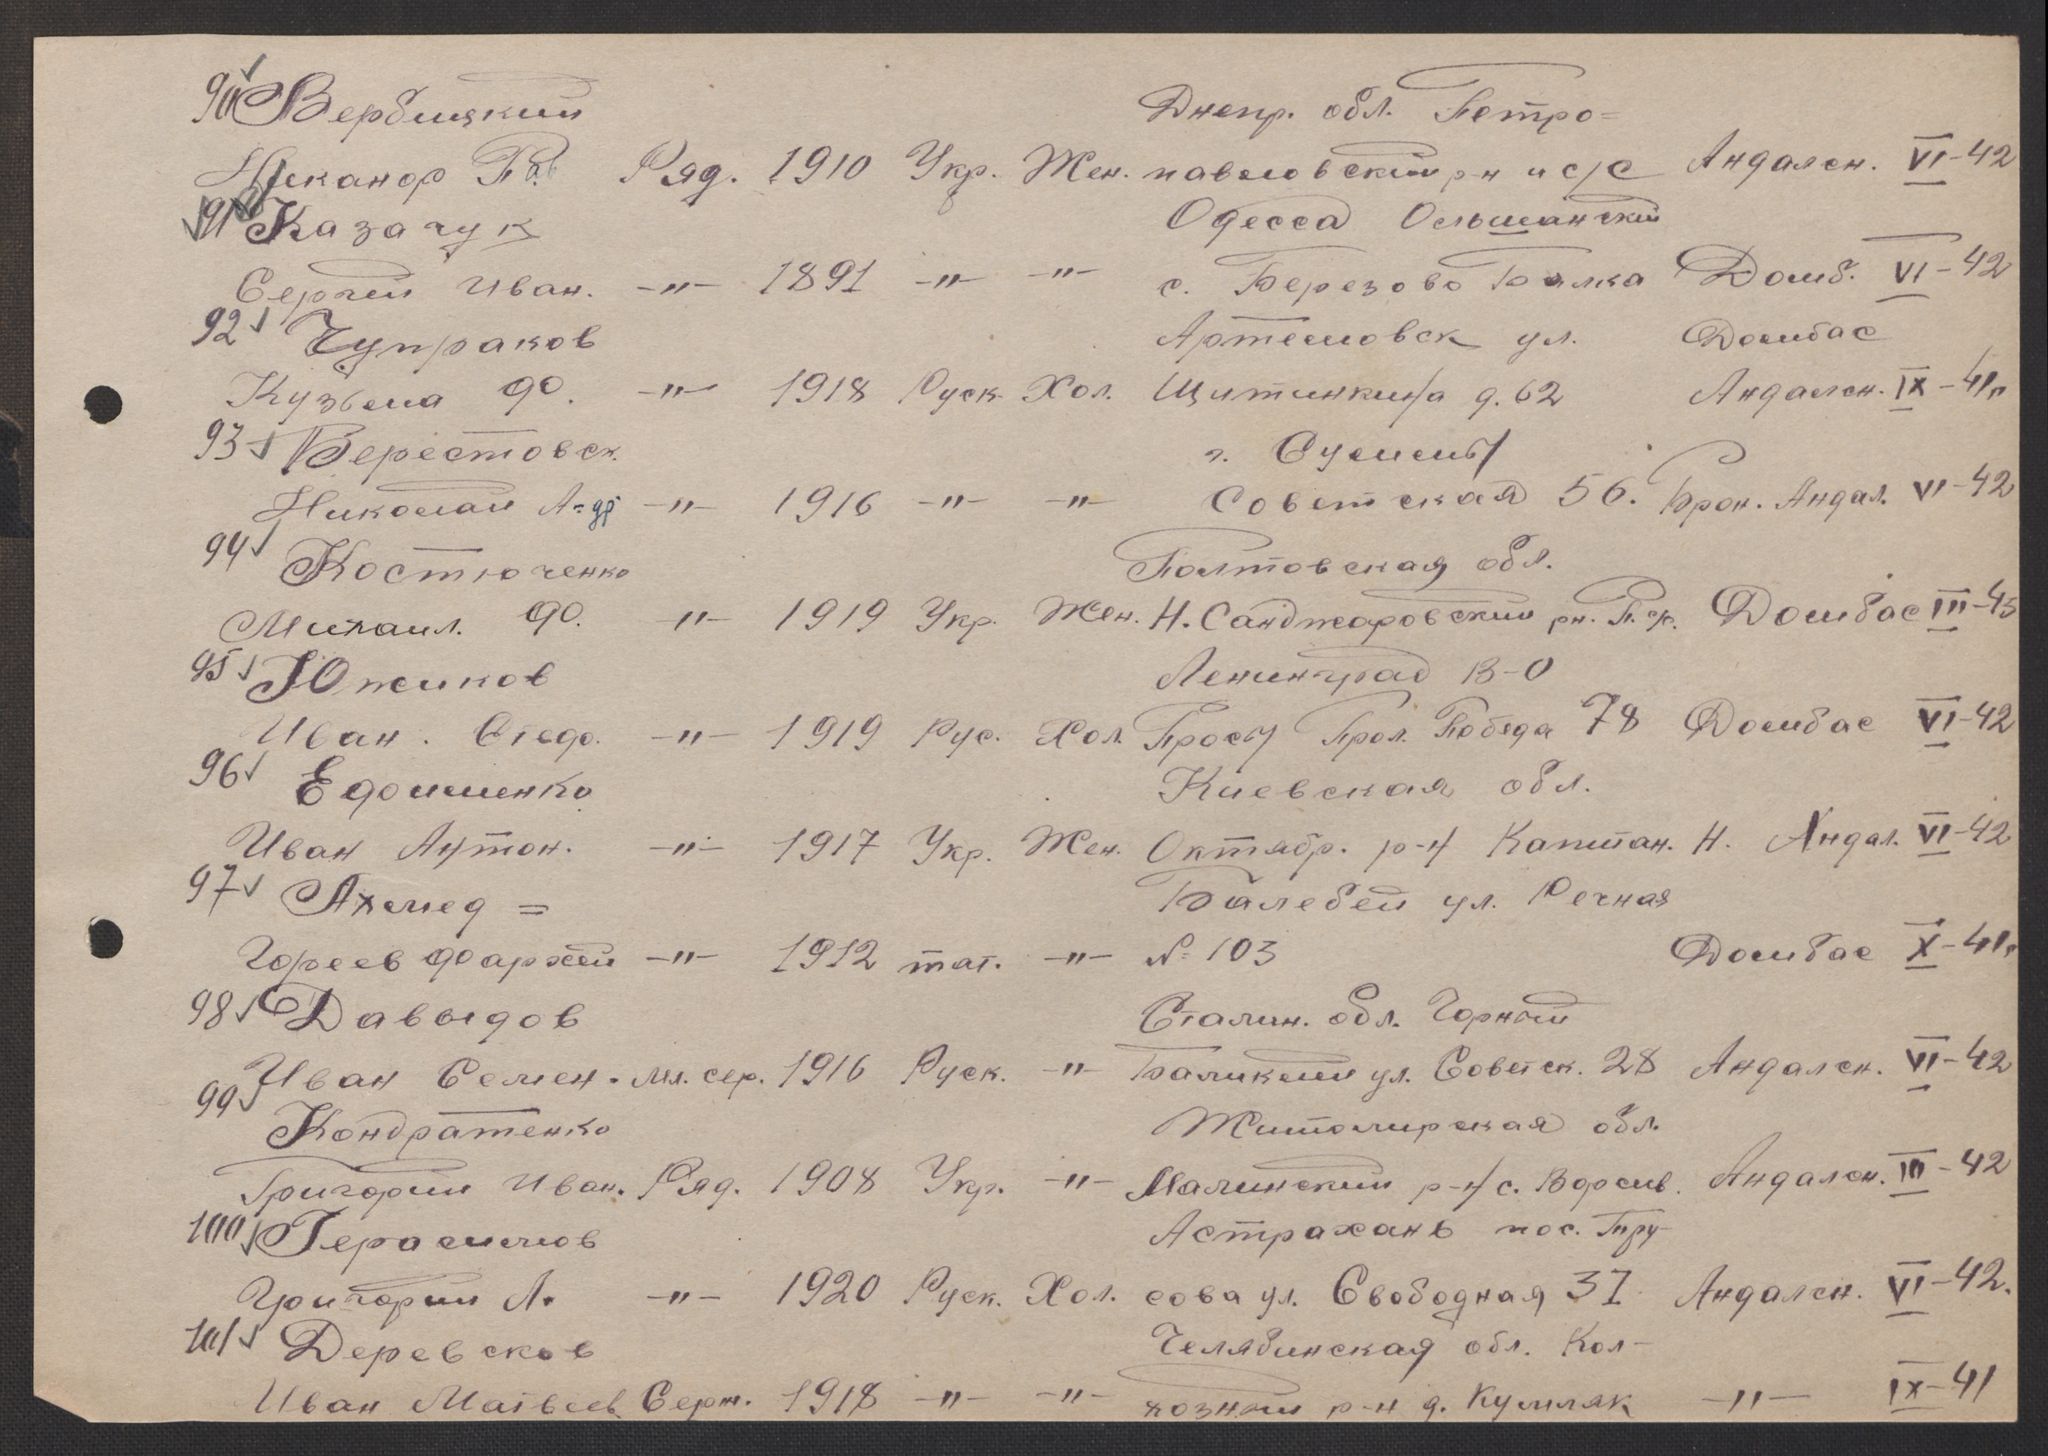 90 Вербицкий Днепр. обл. Петро=
Никанор Пав Ряд. 1910 Укр. Жен. павловский р-н и с/с Андалсн. VI-42
91 Казачук Одесса Ольшанский
Сергей Иван. -"- 1891 -"- -"- с. Березово Балка Домб. VI-42
92 Чупраков Артемовск ул. Домбас
Кузьма Ф. -"- 1918 Руск. Хол. Щитинкина д. 62 Андалсн. IX-41
93 Верестовск. г. Сумы
Николай А-др -"- 1916 -"- -"- Советская 56. Брон. Андал. VI-42
94 Костюченко Полтовская обл.
Михаил. Ф. -"- 1919 Укр. Жен. Н. Санджаровский рн. Домбас III-45
95 Южиков Ленинград В-О
Иван. Стеф. -"- 1919 Рус. Хол. Прол. Победа 78 Домбас VI-42
96 Едошенко Киевская обл.
Иван Антон. -"- 1917 Укр. Жен. Октябр. р-н Капитан. Н. Андал. VI-42
97 Ахмед= Балебей ул. Речная
Гореев -"- 1912 тат. -"- № 103 Домбас X-41
98 Давыдов Сталин. обл. Горный
Иван Семен. мл. сер. 1916 Руск. -"- ул. Советск. 28 Андалсн. VI-42
99 Кондратенко Житомирская обл.
Григорий Иван. Ряд. 1908 Укр. -"- Малинский р-н с. Ворсив. Андалсн. III-42
100 Герасимов Астрахань пос. Тру-
Григорий А. -"- 1920 Руск. Хол. сова ул. Свободная 37 Андалсн. VI-42.
101 Деревсков Челябинская обл. Кол-
Иван Матвеев Серж. 1918 -"- -"- хозный р-н д. Кумляк -"- IX-41